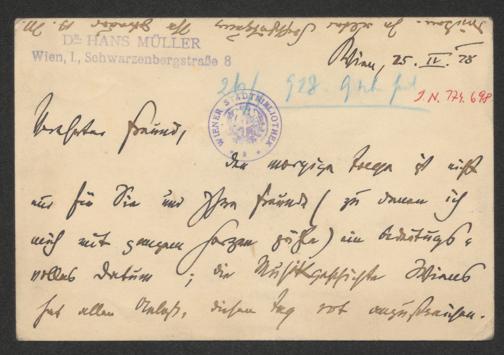 Dr. HANS MÜLLER
Wien, I., Schwarzenbergstraße 8
Wien, 25. IV. 28
J. N. 774.698
WIENER STADTBIBLIOTHEK
Verehrter Freund,
der morgige Tag ist nicht
nur für Sie und Ihre Freunde (zu denen ich
mich mit ganzem Herzen zähle) ein bedeutungs-
volles Datum; die Musikgeschichte Wiens
hat allen Anlaß, diesen Tag rot anzustreichen.